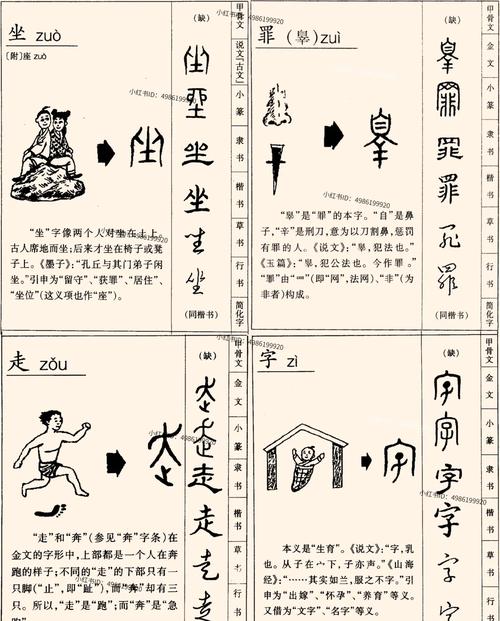 坐 zuò
〔附〕座 zuò
(缺)
甲骨文
说文「古文」
小篆
隶书
楷书
草书
行书
简化字
“坐”字像两个人对坐在土上。
古人席地而坐;后来才坐在椅子或凳
子上。《墨子》:“孔丘与其门弟子闲
坐。”引申为“留守”、“获罪”、“居住”、
“坐位”(这义项也作“座”)。
(同楷书)
罪(辠)zuì
(缺)
甲骨文
金文
小篆
隶书
楷书
草书
行书
简化字
“辠”是“罪”的本字。“自”是鼻
子,“辛”是刑刀,意为以刀割鼻,惩罚
有罪的人。《说文》:“辠,犯法也。”
《玉篇》:“辠,犯公法也。今作罪。”
“罪”由“罒”(即“网”,法网)、“非”(为
非者)构成。
(同楷书)
走 zǒu
(缺)
甲骨文
金文
小篆
隶书
楷书
草
“走”和“奔”(参见“奔”字条)在
金文的字形中,上部都是一个人在奔
跑的样子;不同的“走”的下部只有一
只脚(“止”,即“趾”),而“奔”却有三
只。所以,“走”是“跑”;而“奔”是“急
字 zì
(缺)
甲骨文
金文
小篆
隶书
楷书
草书
行
本义是“生育”。《说文》:“字,乳
也。从子在宀下,子亦声。”《山海
经》:“……其实如兰,服之不字。”引
申为“出嫁”、“怀孕”、“养育”等义。
又借为“文字”、“名字”等义。
小红书ID: 4986199920
小红书ID: 4986199920
小红书ID: 4986199920
小红书ID: 4986199920
小红书ID: 4986199920
小红书ID: 4986199920
小红书ID: 4986199920
小红书ID: 4986199920